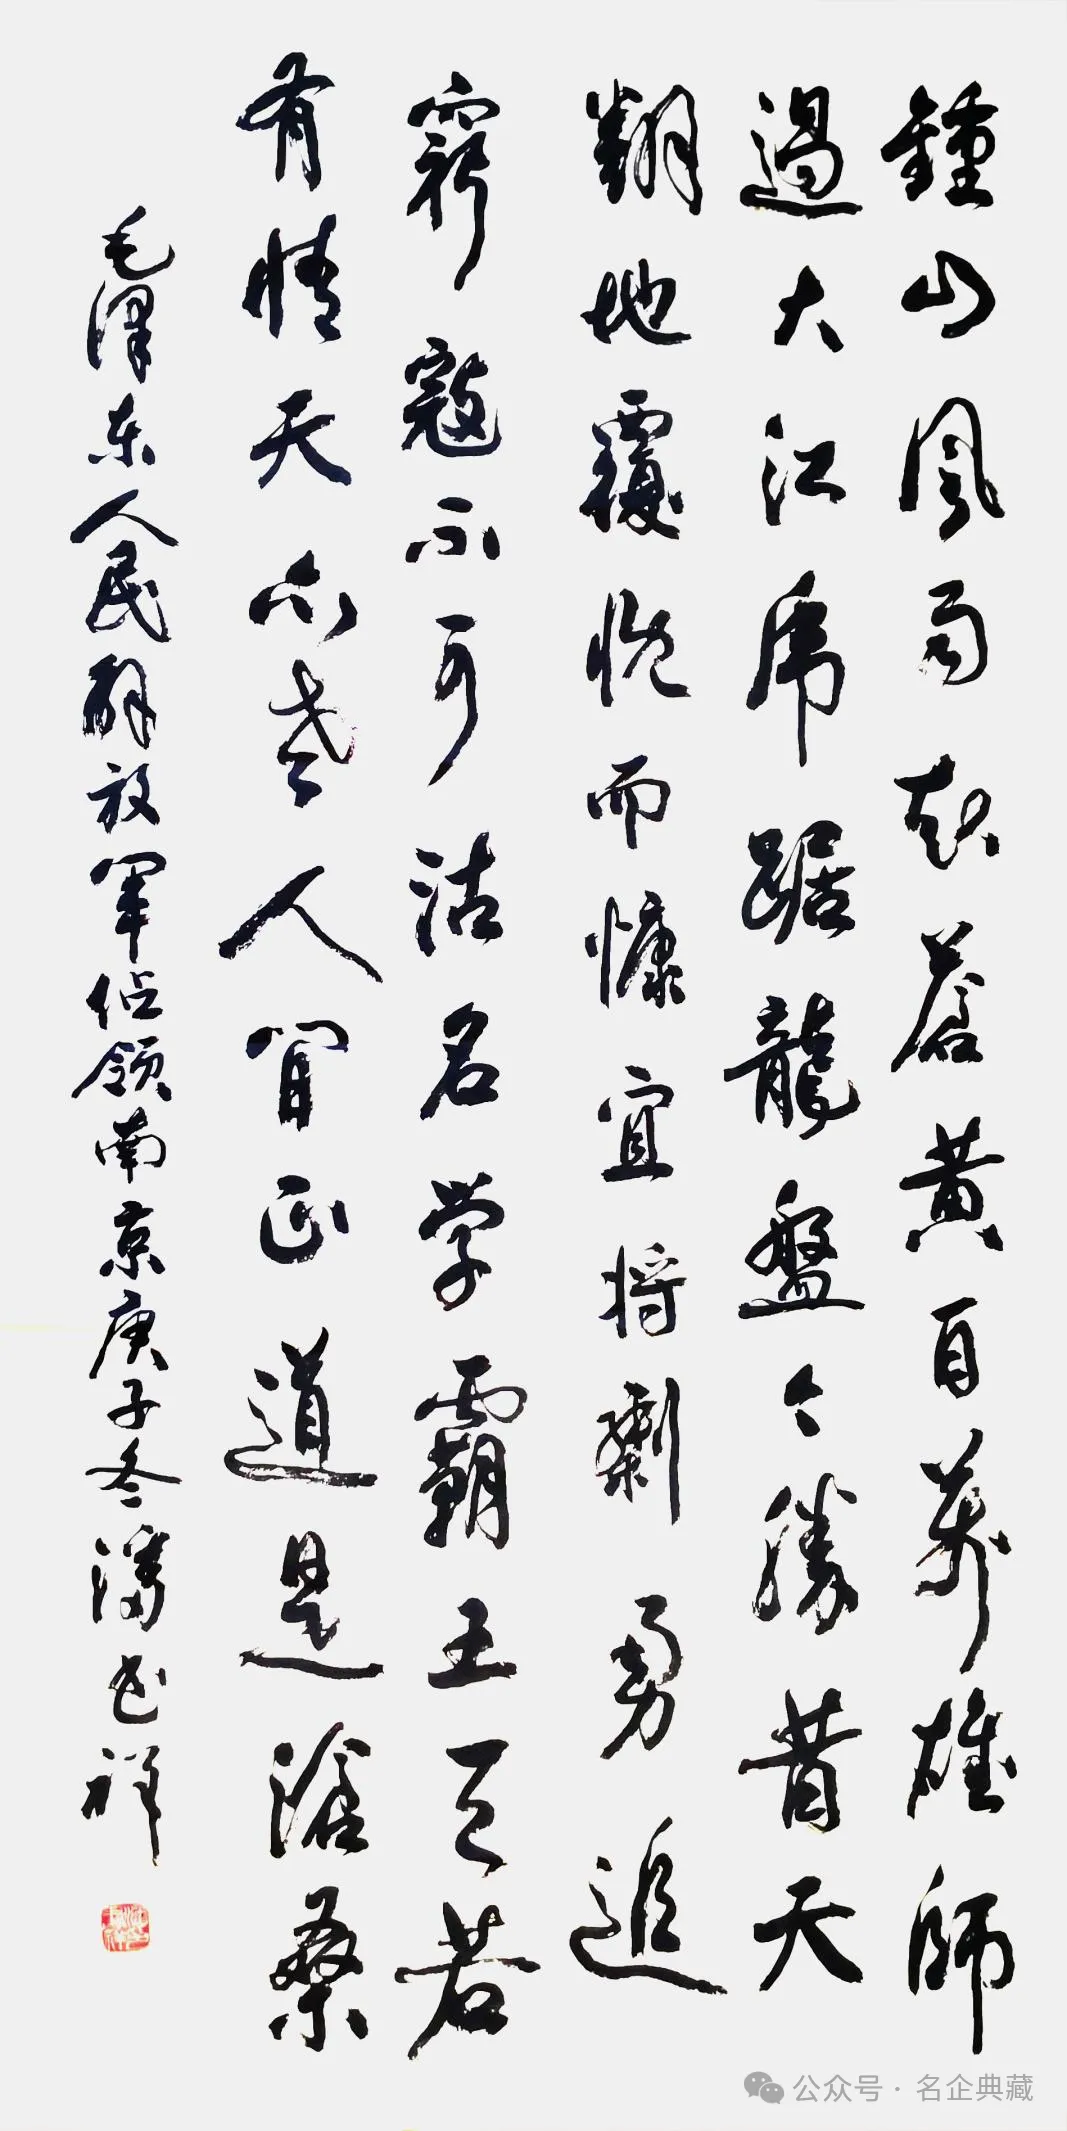 鍾山風雨起蒼黄百萬雄師
過大江虎踞龍盤今勝昔天
翻地覆慨而慷宜将剩勇追
窮寇不可沽名学霸王天若
有情天亦老人间正道是滄桑
毛澤东人民解放軍佔领南京庚子冬祥
公众号·名企典藏